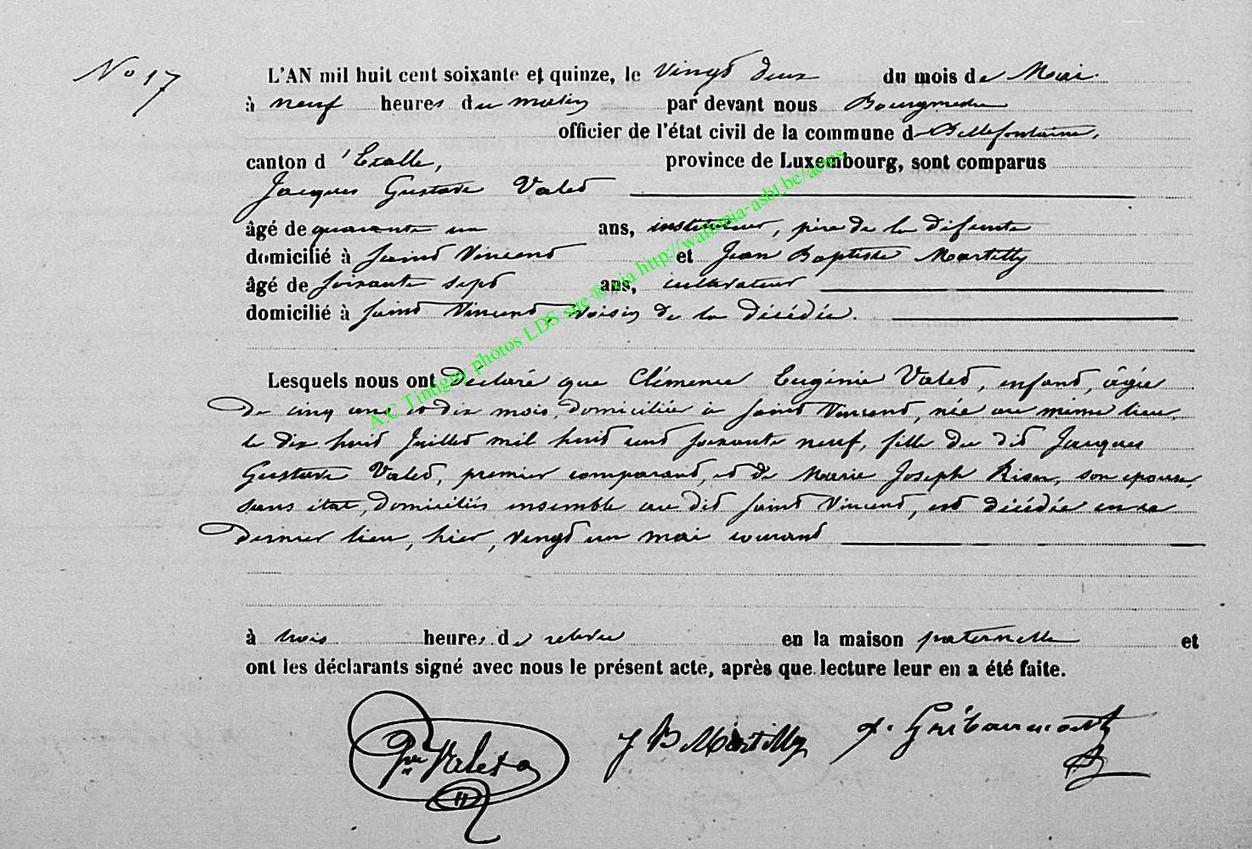 No 17
L'AN mil huit cent soixante et quinze, le vingt deux du mois de Mai
à neuf heures du matin par devant nous Bourgmestre
officier de l'état civil de la commune de Bellefontaine,
canton d'Etalle, province de Luxembourg, sont comparus
Jacques Gustave Valet
âgé de quarante un ans, instituteur, père de la défunte
domicilié à Saint Vincent et Jean Baptiste Martilly
âgé de soixante sept ans, cultivateur
domicilié à Saint Vincent, voisin de la décédée.
Lesquels nous ont déclaré que Clémence Eugénie Valet, enfant, âgée
de cinq ans et dix mois, domiciliée à Saint Vincent, née au même lieu
le dix huit Juillet mil huit cent soixante neuf, fille du dit Jacques
Gustave Valet, premier comparant, et de Marie Joseph, son épouse,
sans état, domiciliés ensemble au dit Saint Vincent, est décédée en ce
dernier lieu, hier, vingt un mai courant
à trois heures de relevée en la maison paternelle et
ont les déclarants signé avec nous le présent acte, après que lecture leur en a été faite.
Valet J B Martilly Gribaumont
A.C Tintigny photos LDS site ® via http://wallonia-asbl.be/actes